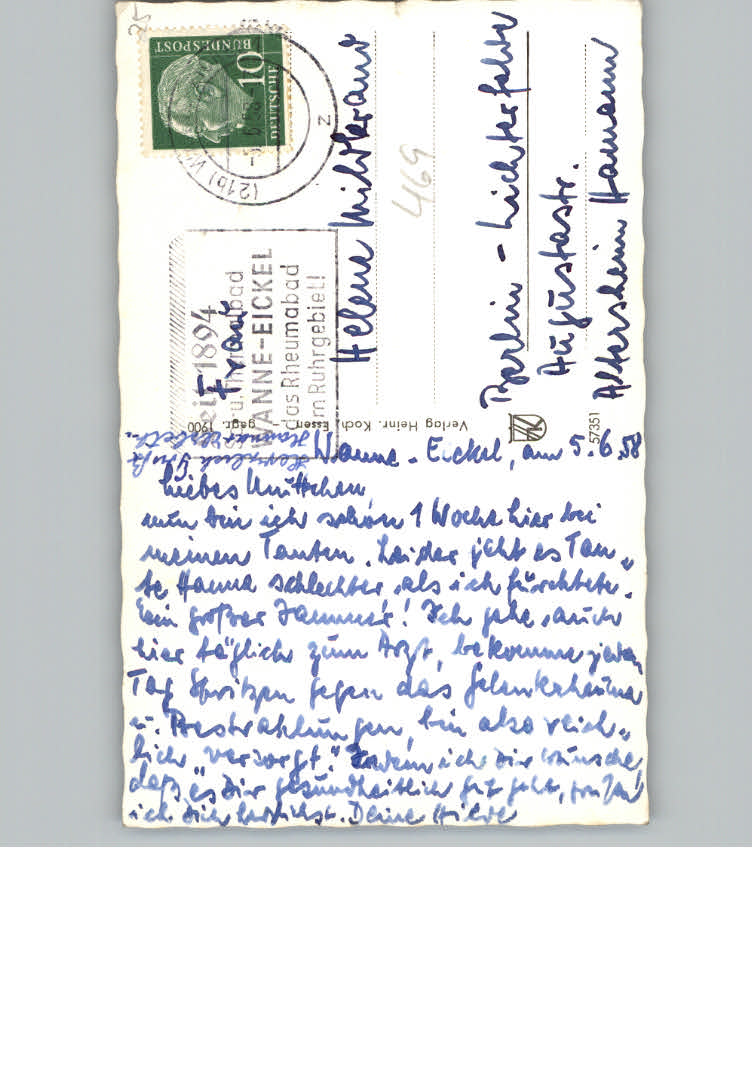 BUNDESPOST
10
DEUTSCHE
(21b)
z
seit 1894
WANNE-EICKEL
das Rheumabad
im Ruhrgebiet!
Frau
Helene Mildbrand
469
Berlin - Lichterfelde
Augustastr.
Altersheim Hamann
Verlag Heinr. Koch, Essen gegr. 1900
57351
Wanne-Eickel, am 5.6.58
Liebes Muttchen,
nun bin ich schon 1 Woche hier bei
meinen Tanten. Leider geht es Tan-
te Hanna schlechter als ich fürchtete.
Ein großer Jammer! Ich gehe auch
hier täglich zum Arzt, bekomme jeden
Tag Spritzen gegen das Gelenkrheuma
u. Bestrahlungen, bin also reich-
lich "versorgt". Indem ich Dir wünsche
daß es Dir gesundheitlich gut geht, grüße
ich Dich herzlichst. Deine Hilde
Herzliche Grüße